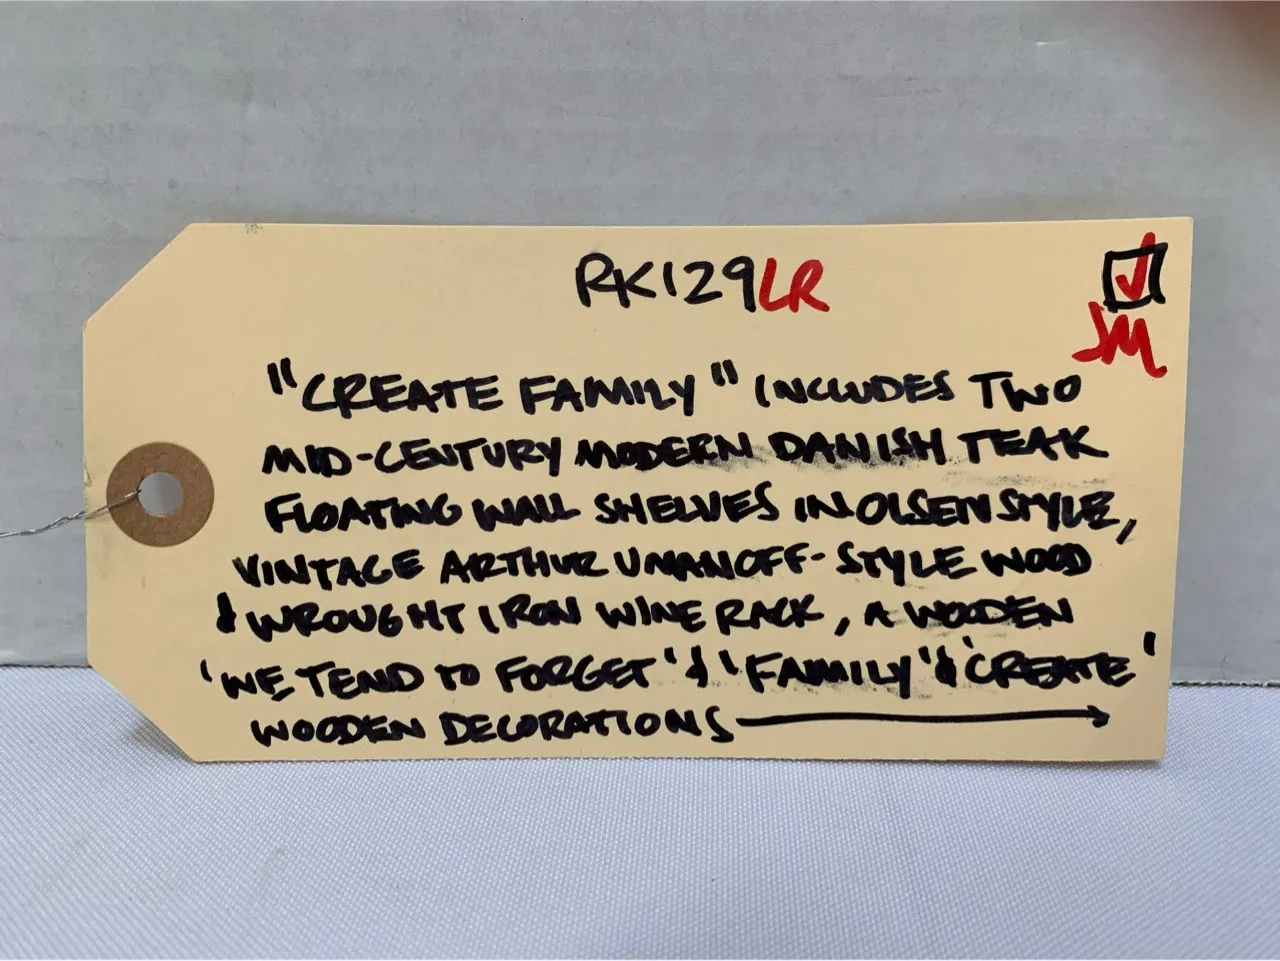 RK129LR
JM
"CREATE FAMILY" INCLUDES TWO
MID-CENTURY MODERN DANISH TEAK
FLOATING WALL SHELVES IN OLSEN STYLE,
VINTAGE ARTHUR UMANOFF-STYLE WOOD
& WROUGHT IRON WINE RACK, A WOODEN
'WE TEND TO FORGET' & 'FAMILY' & 'CREATE'
WOODEN DECORATIONS